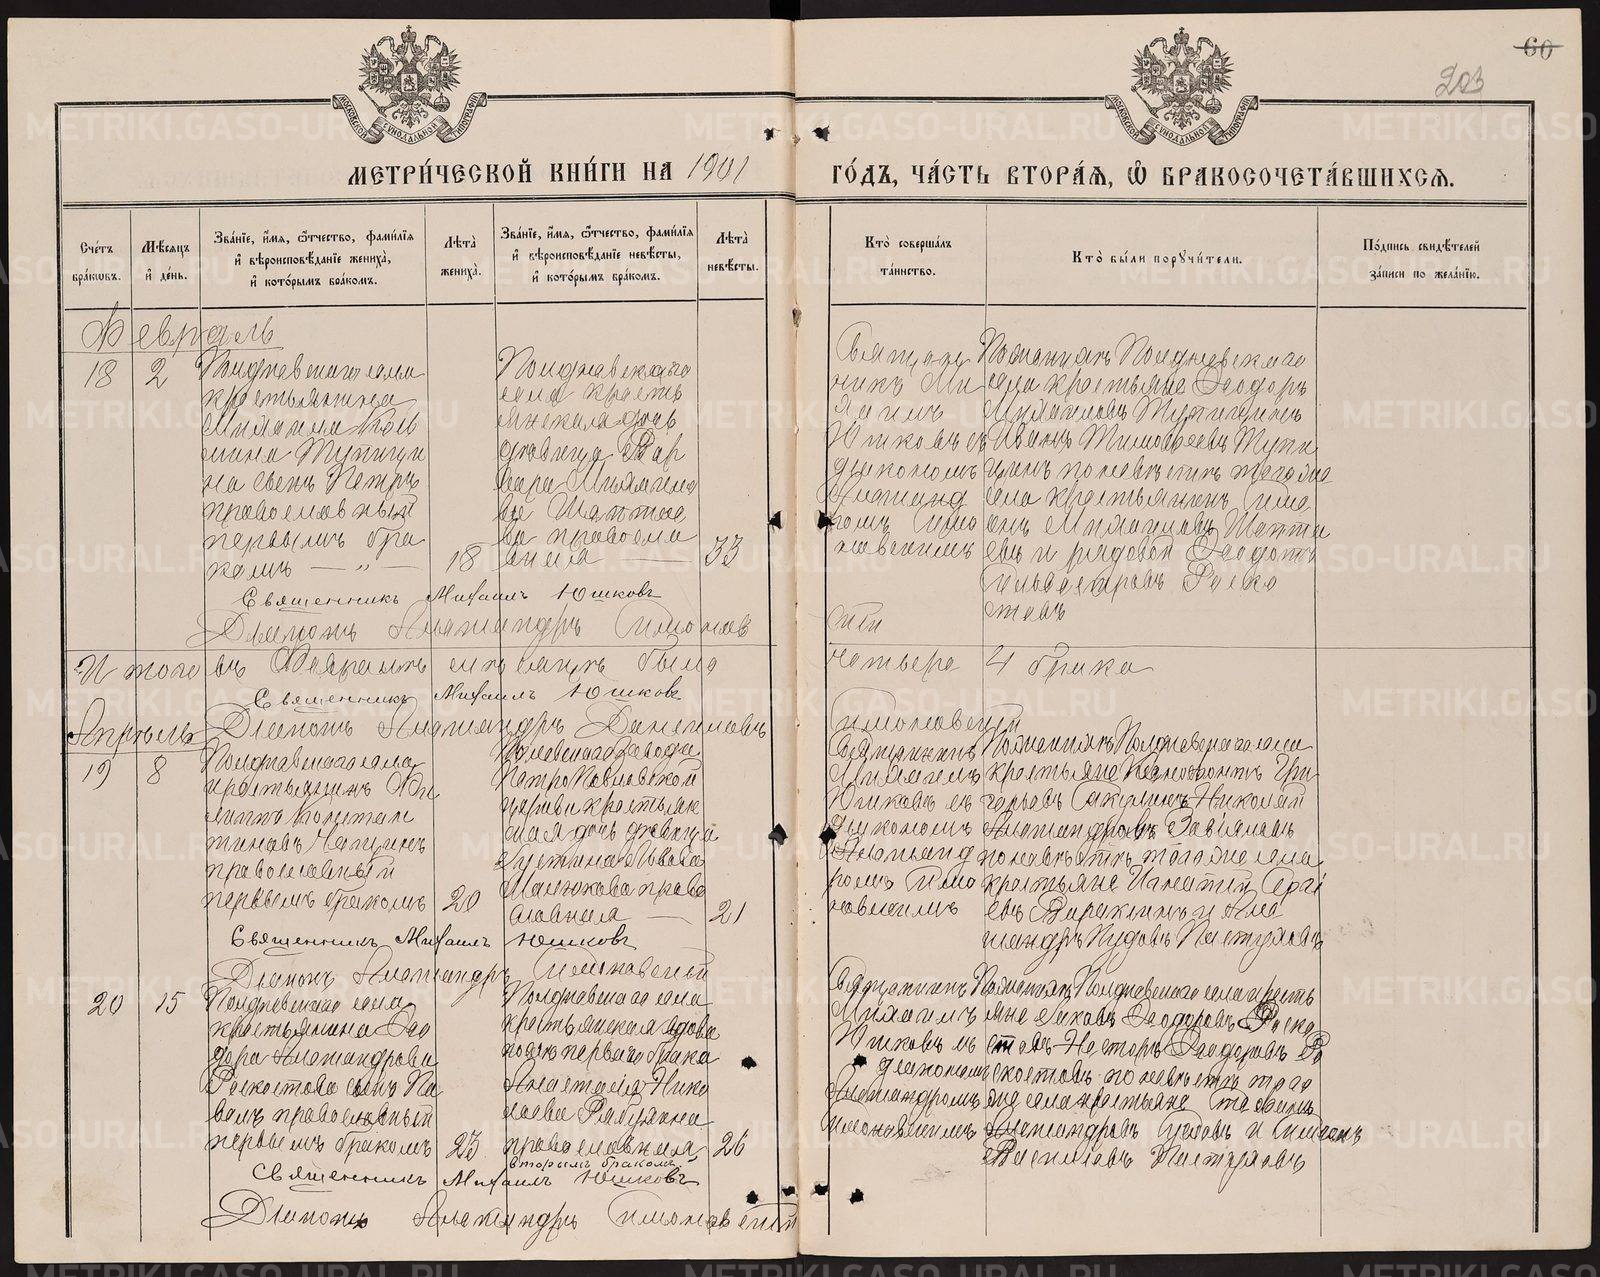 60
203
МЕТРИ́ЧЕСКОЙ КНИ́ГИ НА 1901 ГО́ДЪ, ЧА́СТЬ ВТОРА́Я, Ѿ БРАКОСОЧЕТА́ВШИХСЯ.
Сче́тъ бра́ковъ.
Мѣ́сяцъ и҆ де́нь.
Зва́нїе, и҆́мя, ѻ҆́тчество, фами́лїя и҆ вѣроисповѣ́данїе жениха̀, и҆ кото́рымъ бра́комъ.
Лѣта̀ жениха̀.
Зва́нїе, и҆́мя, ѻ҆́тчество, фами́лїя и҆ вѣроисповѣ́данїе невѣ́сты, и҆ кото́рымъ бра́комъ.
Лѣта̀ невѣ́сты.
Кто̀ соверша́лъ та́инство.
Кто̀ бы́ли поручи́тели.
По́дпись свидѣ́телей за́писи по жела́нїю.
Февраль
18
2
Полдневскаго села
крестьянина
Михаила
Тупици
на сынъ Петръ
православный
первымъ бра
комъ — „ —
18
Полдневскаго
села кресть
янская дочь
дѣвица Вар
вара Михаило
ва
ва правосла
вная
33
Священ
никъ Ми
хаилъ
Юшковъ съ
діакономъ
Александ
ромъ Симо
новскимъ
Поженихѣ Полдневскаго
села крестьяне Ѳеодоръ
Михаиловъ Тупицинъ
Иванъ Тимоѳеевъ Тупи
цинъ по невѣстѣ того же
села крестьянинъ Симе
онъ Михаиловъ
евъ и рядовой Ѳеодотъ
Сильвестровъ Роско
стовъ
Священникъ Михаилъ Юшковъ
Діаконъ Александръ Симонов
скій
Итого въ Февралѣ мѣсяцѣ было
четыре 4 брака
Священникъ Михаилъ Юшковъ
Діаконъ Александръ
Симоновскій
Апрѣль
19
8
Полдневскаго села
крестьянинъ Фи
липпъ
православный
первымъ бракомъ
20
Полевскаго завода
Петро Павловской
церкви крестьян
ская дочь дѣвица
Устина Ивова
Малюкова право
славная —
21
Священникъ
Михаилъ
Юшковъ съ
діакономъ
Александ
ромъ Симо
новскимъ
Поженихѣ Полдневскаго села
крестьяне Ксенофонтъ Гри
горьевъ Николай
Александровъ Завьяловъ
по невѣстѣ того же села
крестьяне Игнатій Сергі
евъ и Але
ксандръ Пудовъ Пастуховъ
Священникъ Михаилъ Юшковъ
Діаконъ Александръ Симоновскій
20
15
Полдневскаго села
крестьянина Ѳео
дора Александрова
Роскостова сынъ Па
велъ православный
первымъ бракомъ
23
Полдневскаго села
крестьянская вдова
послѣ перваго брака
Анастасія Нико
лаева
православная
вторымъ бракомъ
26
Священникъ
Михаилъ
Юшковъ съ
діакономъ
Александромъ
Симоновскимъ
Поженихѣ Полдневскаго села кресть
яне Яковъ Ѳеодоровъ Роско
стовъ Несторъ Ѳеодоровъ Ро
скостовъ по невѣстѣ того
же села крестьяне
Александровъ и Симеонъ
Васильевъ Пастуховъ
Священникъ Михаилъ Юшковъ
Діаконъ Александръ Симоновскій